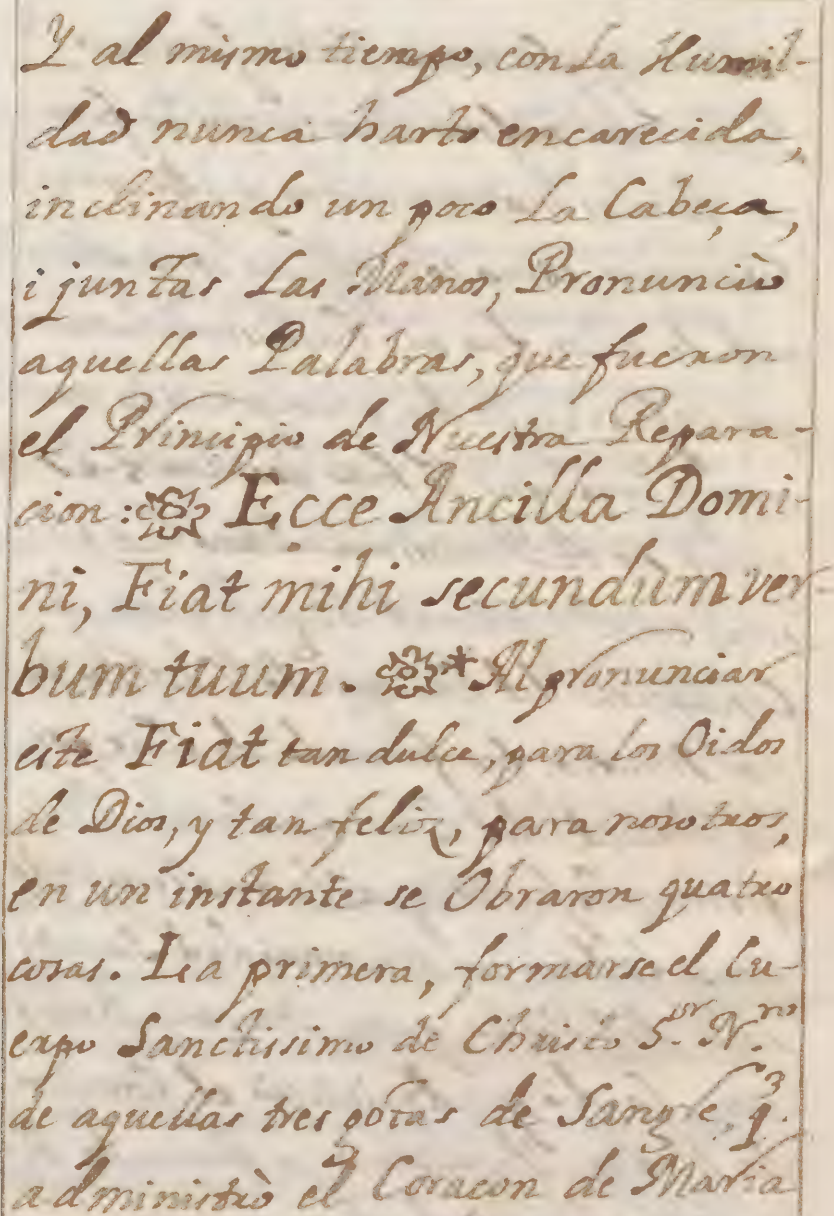 Y al mismo tiempo, con La Humil-
dad nunca harto encarecida,
inclinando un poco La Cabeça,
i juntas Las Manos, Pronunciò
aquellas Palabras, que fueron
el Principio de Nuestra Repara-
cion: Ecce Ancilla Domi-
ni, Fiat mihi secundum ver
bum tuum. * Al pronunciar
este Fiat tan dulce, para los Oidos
de Dios, y tan feliz, para nosotros,
en un instante se Obraron quatro
cosas. La primera, formarse el Cu-
erpo Sanctissimo de Christo S.or N.ro
de aquellas tres gotas de Sangre, q.
administrò el Coraçon de Maria